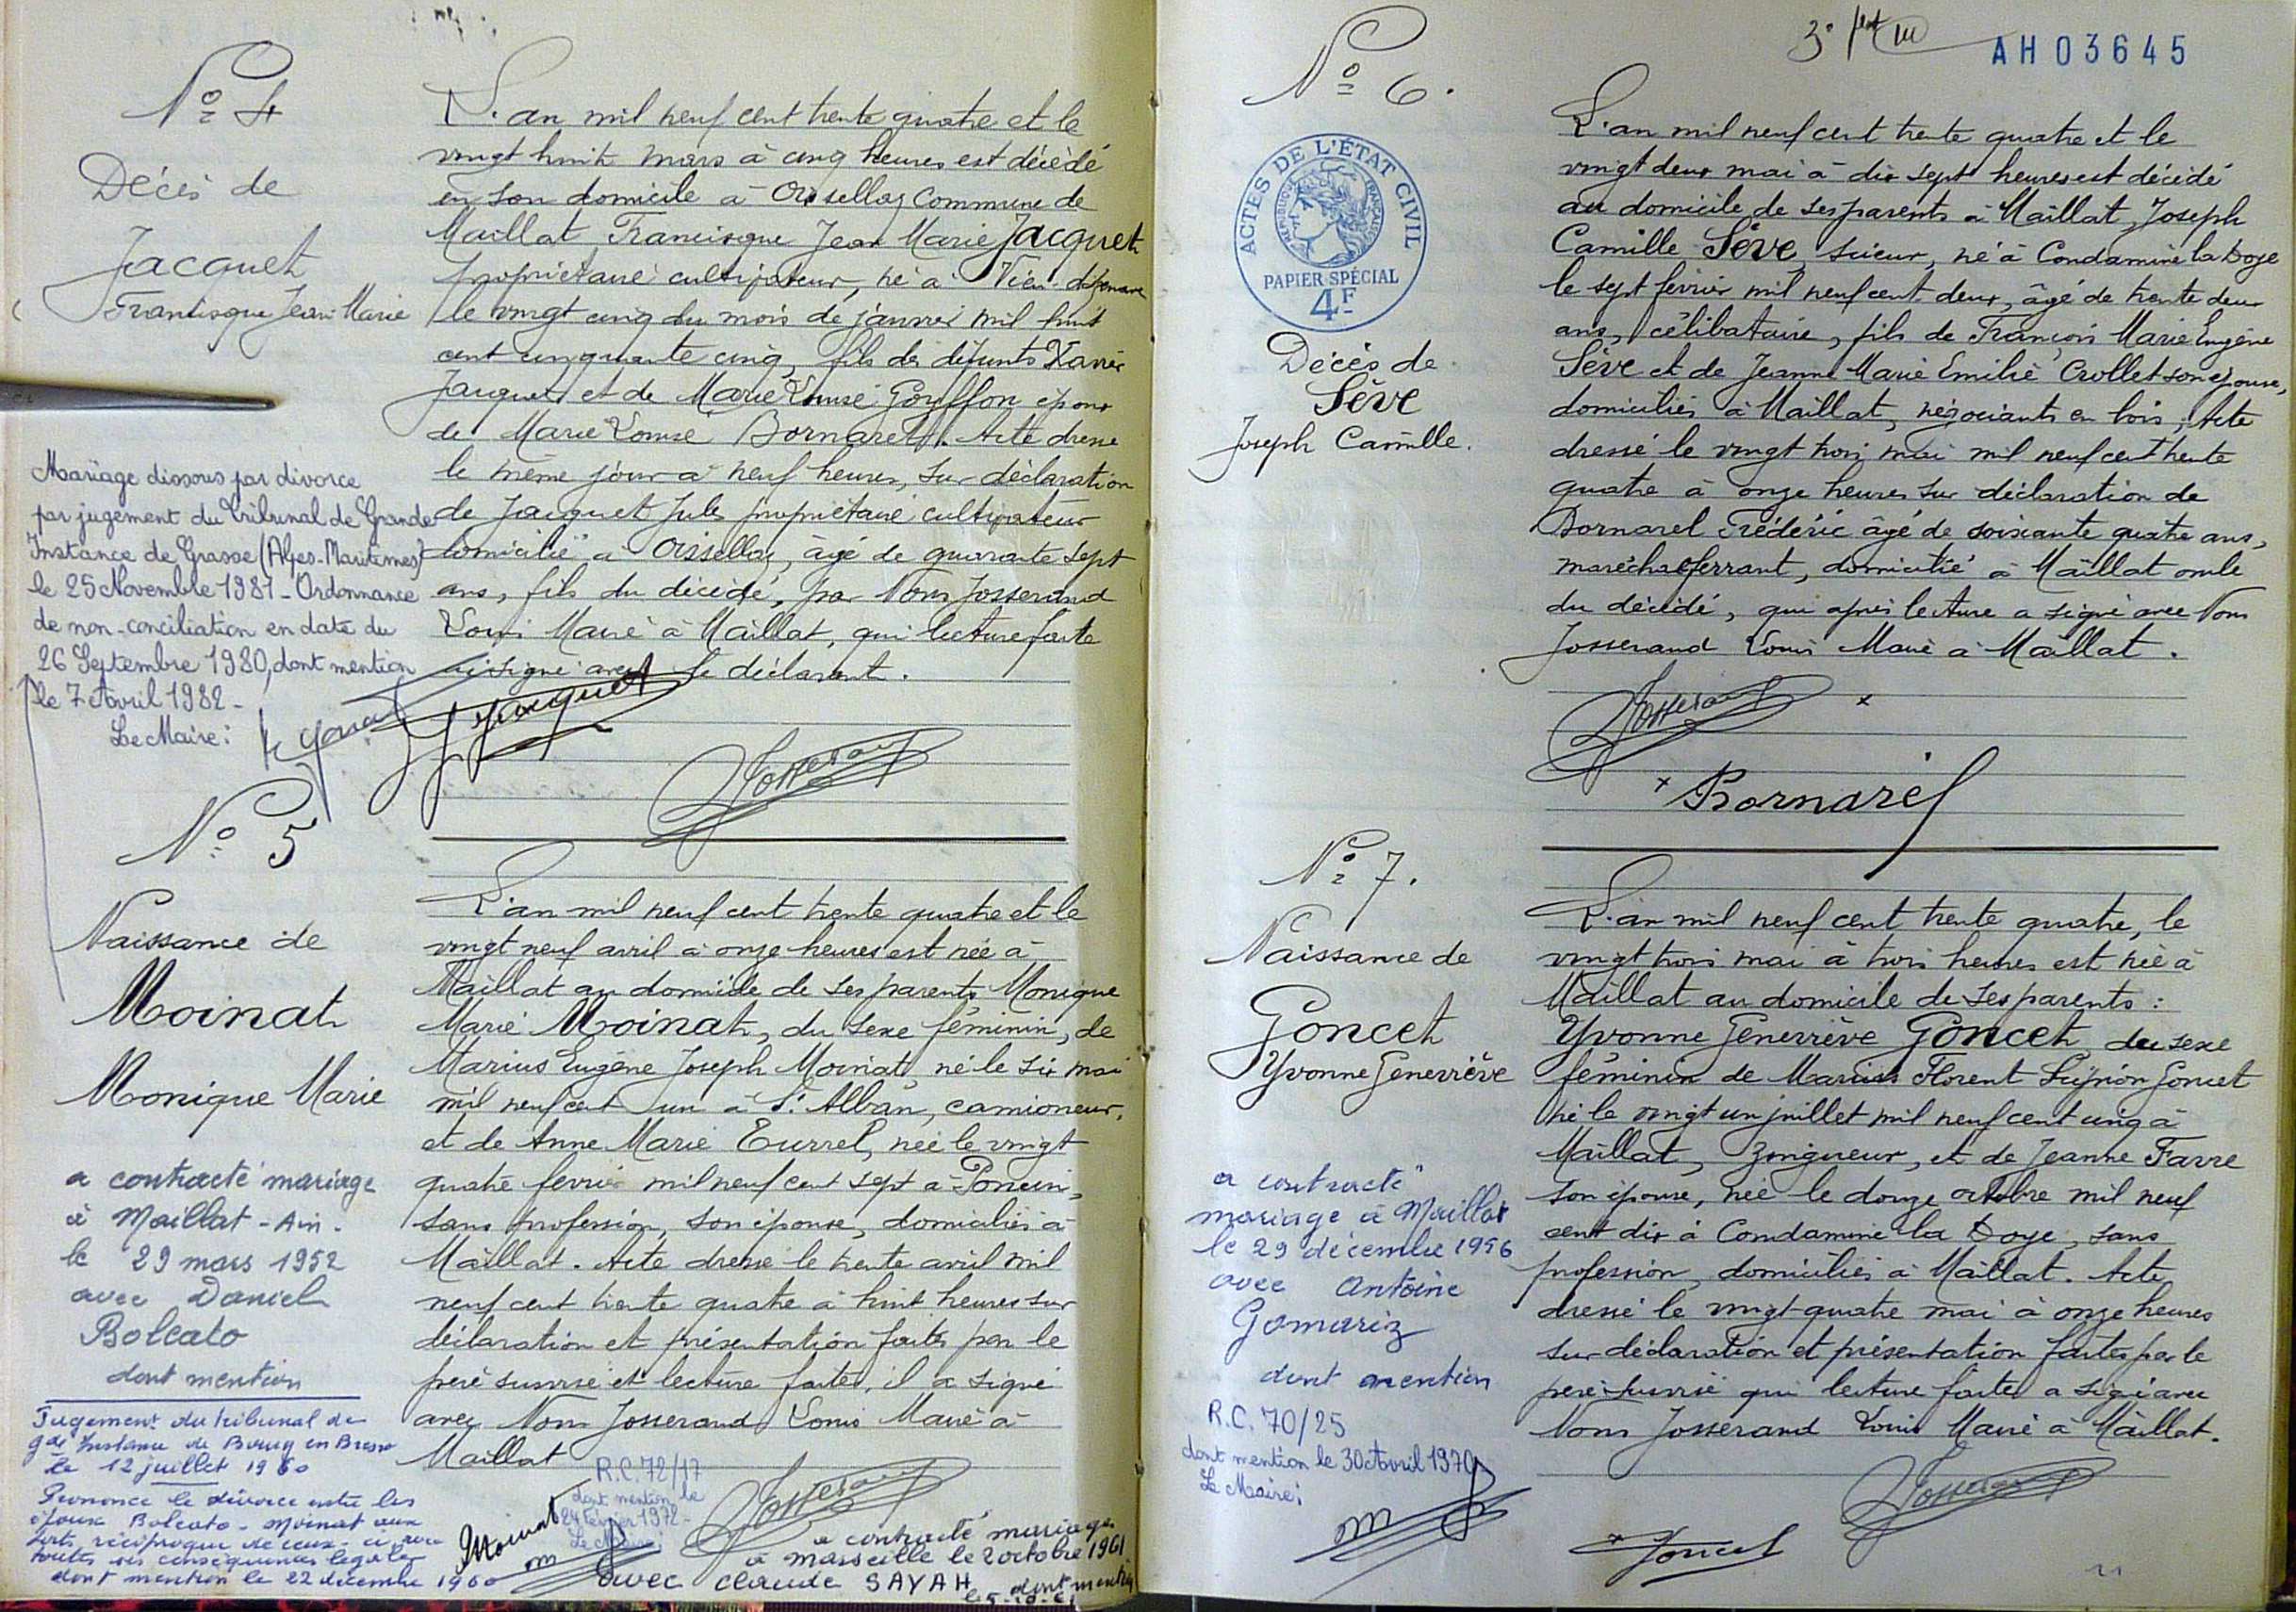 N° 4
Décès de
Jacquet
Francisque Jean Marie
L'an mil neuf cent trente quatre et le
vingt huit mars à cinq heures est décédé
en son domicile à Oisselaz Commune de
Maillat, Francisque Jean Marie Jacquet
propriétaire cultivateur, né à Vieu d'Izenave
le vingt cinq du mois de janvier mil huit
cent cinquante cinq, fils de défunts Xavier
Jacquet et de Marie Louise Goyffon époux
de Marie Louise Bornarel. Acte dressé
le même jour à neuf heures, sur déclaration
de Jacquet Jules propriétaire cultivateur
domicilié à Oisselaz, âgé de quarante sept
ans, fils du décédé, par Nous Josserand
Louis Maire à Maillat, qui lecture faite
a signé avec le déclarant.
Jacquet
Josserand
Mariage dissous par divorce
par jugement du Tribunal de Grande
Instance de Grasse (Alpes-Maritimes)
le 25 Novembre 1981 - Ordonnance
de non-conciliation en date du
26 Septembre 1980, dont mention
le 7 Avril 1982 -
Le Maire:
N° 5
Naissance de
Moinat
Monique Marie
L'an mil neuf cent trente quatre et le
vingt neuf avril à onze heures est née à
Maillat au domicile de ses parents Monique
Marie Moinat, du sexe féminin, de
Marius Eugène Joseph Moinat, né le six mai
mil neuf cent un à St Alban, camioneur,
et de Anne Marie Turrel, née le vingt
quatre février mil neuf cent sept à Poncin,
sans profession, son épouse, domiciliés à
Maillat. Acte dressé le trente avril mil
neuf cent trente quatre à huit heures sur
déclaration et présentation faites par le
père susvisé et lecture faite, il a signé
avec Nous Josserand Louis Maire à
Maillat
Moinat
Josserand
a contracté mariage
à Maillat - Ain -
le 29 mars 1952
avec Daniel
Bolcato
dont mention
Jugement du tribunal de
gde Instance de Bourg en Bresse
le 12 juillet 1960
Prononce le divorce entre les
époux Bolcato - Moinat aux
torts réciproques de ceux-ci avec
toutes ses conséquences légales
dont mention le 22 décembre 1960
R.C. 72/17
dont mention le
24 Février 1972 -
Le Maire:
a contracté mariage
à Marseille le 2 octobre 1961
avec Claude SAYAH
dont mention
N° 6.
3e
AH03645
ACTES DE L'ÉTAT CIVIL
RÉPUBLIQUE FRANÇAISE
PAPIER SPÉCIAL
4F
Décès de
Sève
Joseph Camille.
L'an mil neuf cent trente quatre et le
vingt deux mai à dix sept heures est décédé
au domicile de ses parents à Maillat, Joseph
Camille Sève, scieur, né à Condamine la Doye
le sept février mil neuf cent deux, âgé de trente deux
ans, célibataire, fils de François Marie Eugène
Sève et de Jeanne Marie Emilie Crollet son épouse,
domiciliés à Maillat, négociants en bois; Acte
dressé le vingt trois mai mil neuf cent trente
quatre à onze heures sur déclaration de
Bornarel Frédéric âgé de soixante quatre ans,
maréchal ferrant, domicilié à Maillat oncle
du décédé, qui après lecture a signé avec Nous
Josserand Louis Maire à Maillat.
Josserand x
x Bornarel
N° 7.
Naissance de
Goncet
Yvonne Geneviève
L'an mil neuf cent trente quatre, le
vingt trois mai à trois heures est née à
Maillat au domicile de ses parents:
Yvonne Geneviève Goncet, du sexe
féminin de Marius Florent Goncet
né le vingt un juillet mil neuf cent cinq à
Maillat, zingueur, et de Jeanne Favre
son épouse, née le douze octobre mil neuf
cent dix à Condamine la Doye, sans
profession, domiciliés à Maillat. Acte
dressé le vingt-quatre mai à onze heures
sur déclaration et présentation faites par le
père susvisé qui lecture faite a signé avec
Nous Josserand Louis Maire à Maillat.
Josserand
x Goncet
a contracté
mariage à Maillat
le 29 décembre 1956
avec Antoine
Gomariz
dont mention
R.C. 70/25
dont mention le 30 Avril 1970
Le Maire: